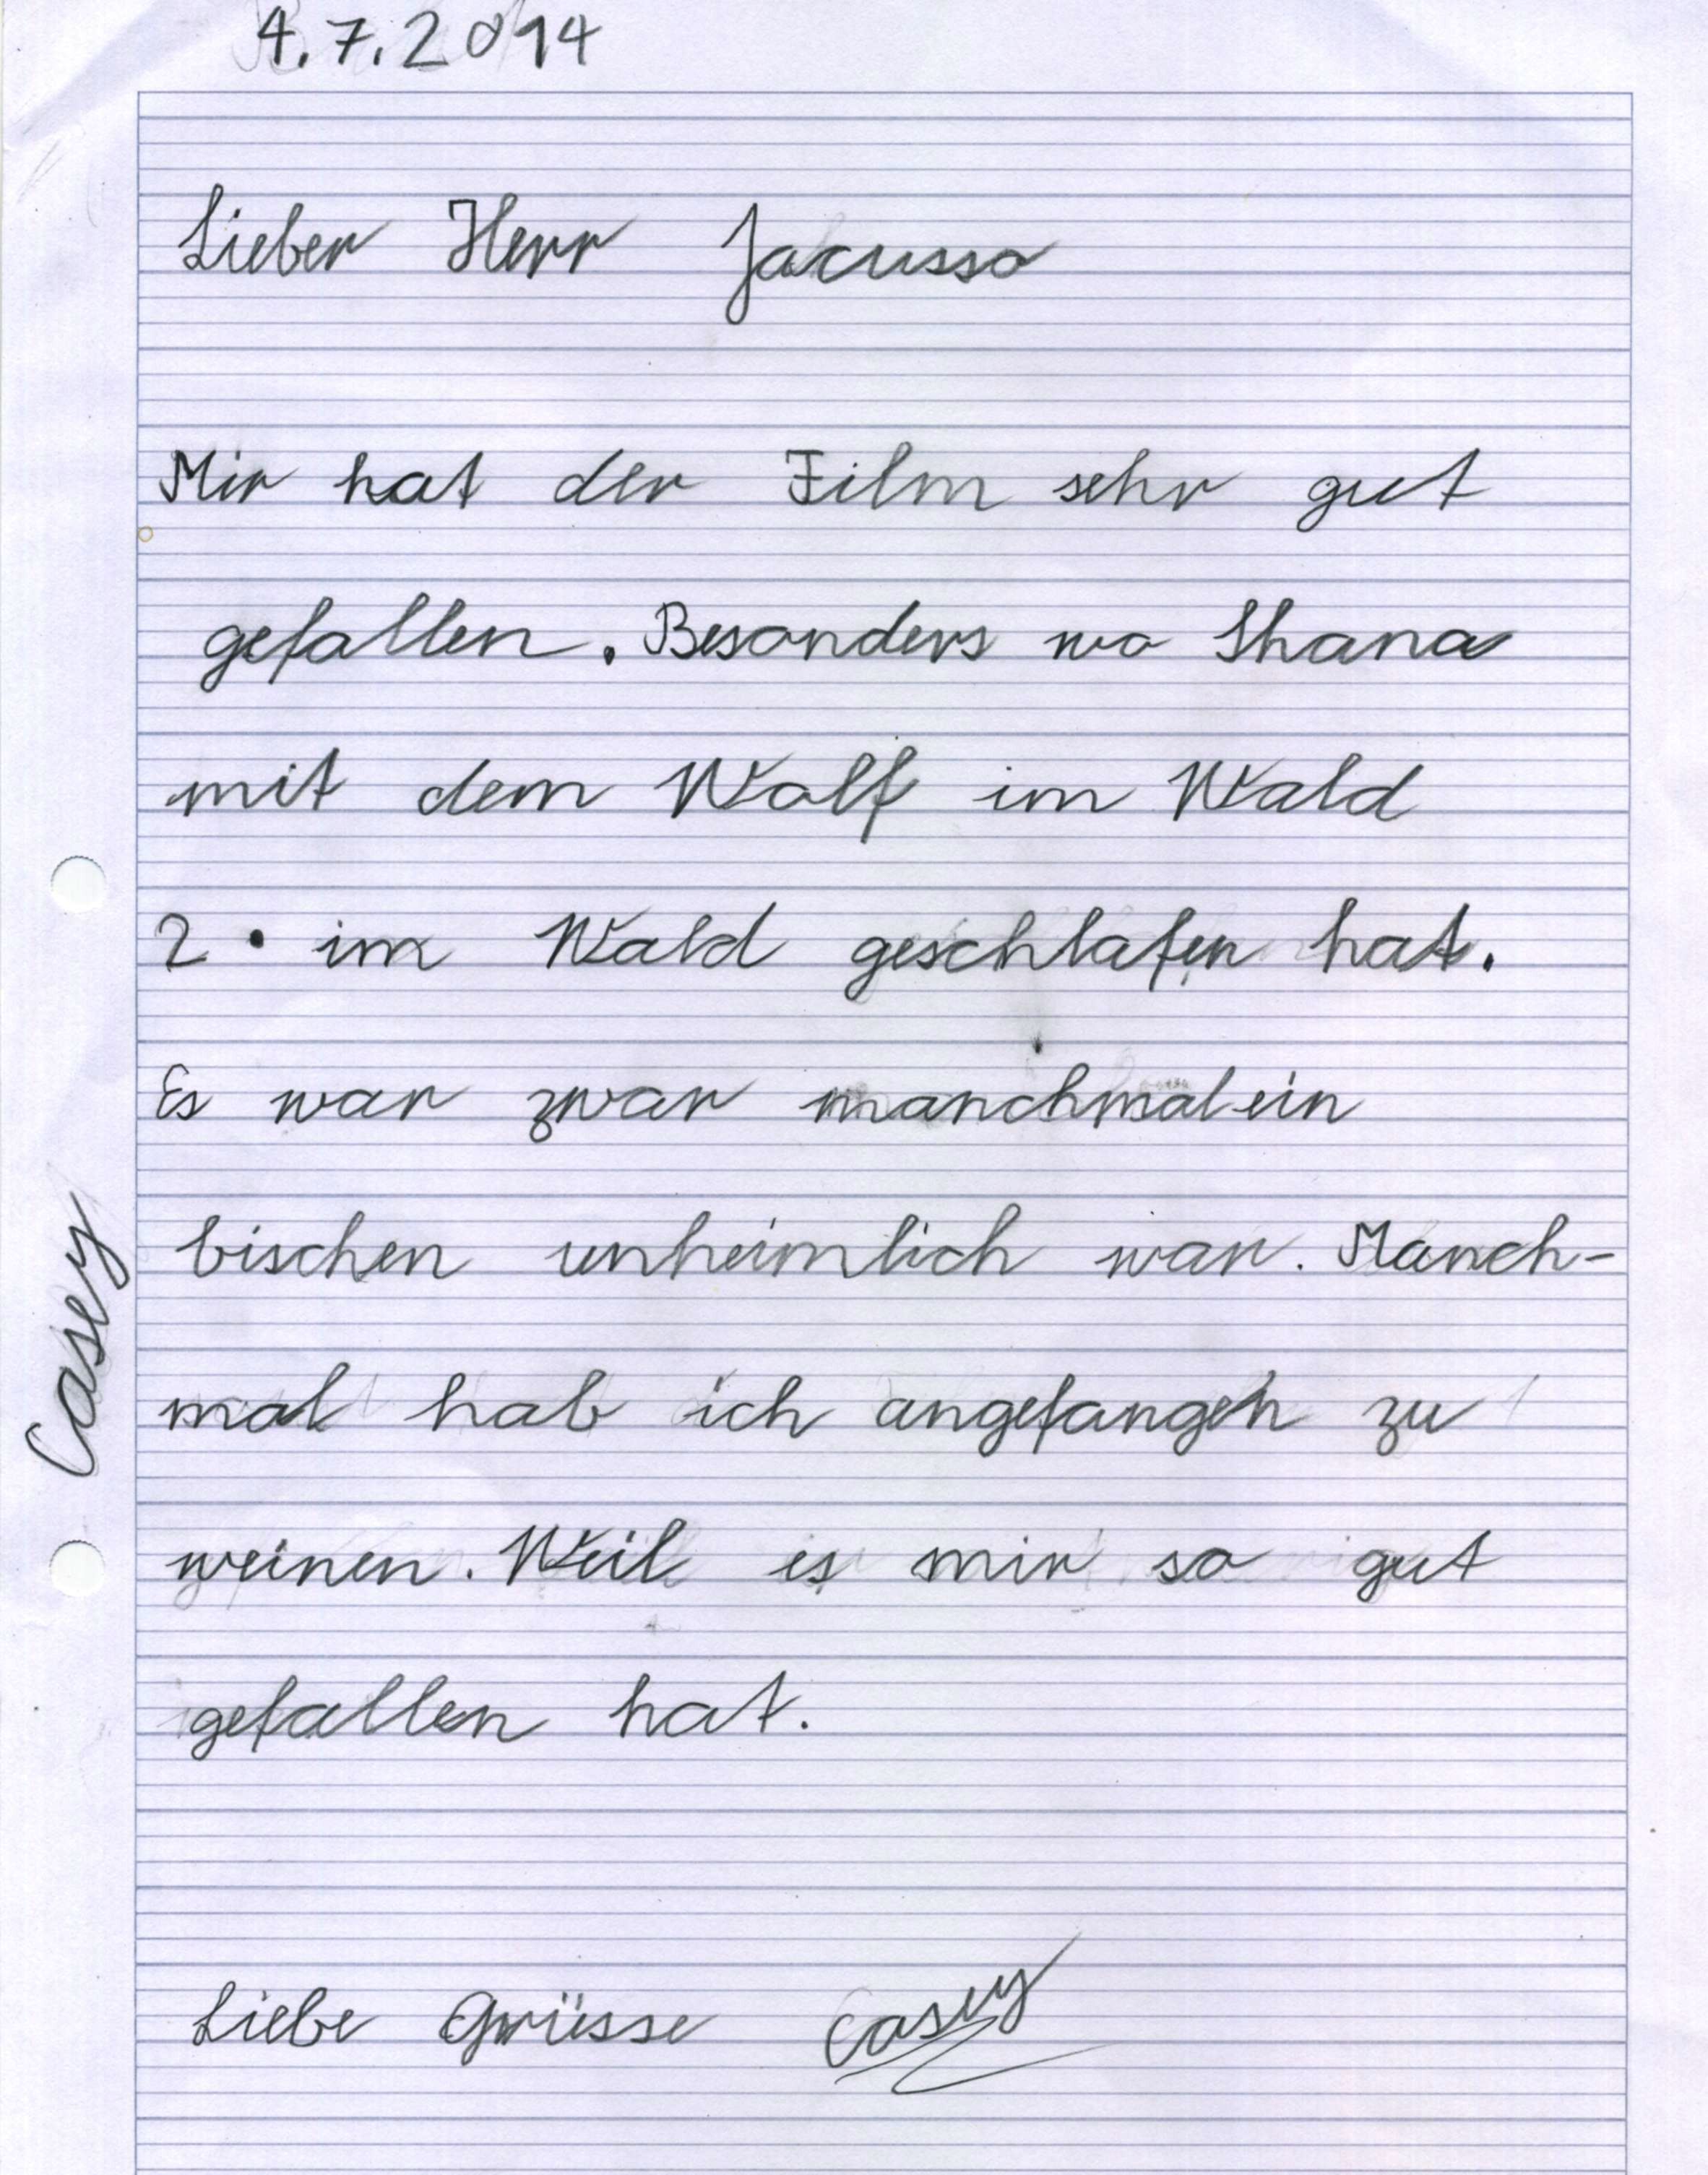 4.7.2014
Lieber Herr Jacusso
Mir hat der Film sehr gut
gefallen. Besonders wo Shana
mit dem Wolf im Wald
2 • im Wald geschlafen hat.
Es war zwar manchmal ein
bischen unheimlich war. Manch-
mal hab ich angefangen zu
weinen. Weil es mir so gut
gefallen hat.
Liebe Grüsse Casey
Casey